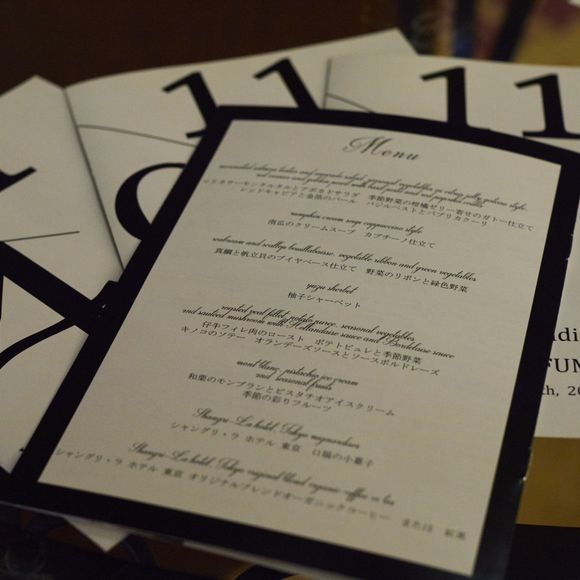 Menu
marinated salmon tartar and avocado salad, seasonal vegetables in citrus jelly, gateau style,
red caviar and golden pearl with basil paste and red paprika coulis
レッドサーモンタルタルとアボカドサラダ 季節野菜の柑橘ゼリー寄せのガトー仕立て
レッドキャビアと金箔のパール バジルペストとパプリカクーリ
pumpkin cream soup cappuccino style
南瓜のクリームスープ カプチーノ仕立て
seabream and scallop bouillabaisse, vegetable ribbon and green vegetables
真鯛と帆立貝のブイヤベース仕立て 野菜のリボンと緑色野菜
yuzu sherbet
柚子シャーベット
roasted veal fillet, potato puree, seasonal vegetables
and sauteed mushroom with Hollandaise sauce and Bordelaise sauce
仔牛フィレ肉のロースト ポテトピュレと季節野菜
キノコのソテー オランデーズソースとソースボルドレーズ
mont blanc, pistachio ice cream
and seasonal fruits
和栗のモンブランとピスタチオアイスクリーム
季節の彩りフルーツ
Shangri-La hotel, Tokyo mignardises
シャングリ・ラ ホテル 東京 口福の小菓子
Shangri-La hotel, Tokyo original blend organic coffee or tea
シャングリ・ラ ホテル 東京 オリジナルブレンドオーガニックコーヒー または 紅茶
11
11
FUM
th, 20